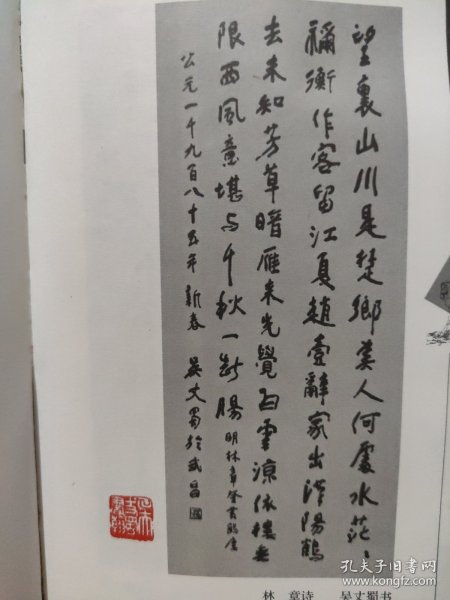 望裏山川是楚鄉美人何處水茫〻
禰衡作客留江夏趙壹辭家出漢陽鶴
去未知芳草暗雁來先覺白雲涼依樓無
限西風意堪与千秋一断腸 明林章登黃鶴樓
公元一千九百八十五年新春 吴丈蜀於武昌
林 章诗 吴丈蜀书
孔夫子旧书网